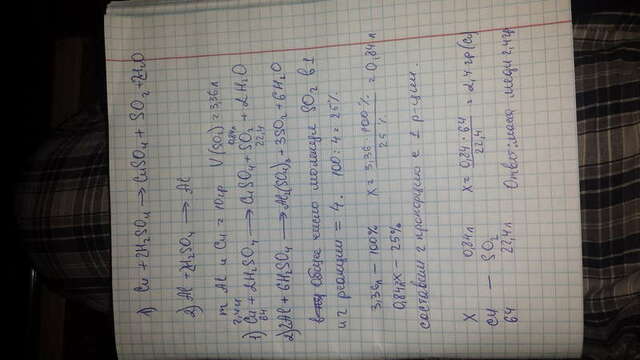 1) Cu + 2H2SO4 → CuSO4 + SO2 + 2H2O
2) Al + 2H2SO4 → Al
m Al и Cu = 10 гр V (SO2) = 3,36 л
0,84л
1) Cu + 2H2SO4 → CuSO4 + SO2 + 2H2O
64 22,4
2) 2Al + 6H2SO4 → Al2(SO4)3 + 3SO2 + 6H2O
Общее число молекул SO2 в 1
и 2 реакции = 4. 100 : 4 = 25%.
3,36л - 100% x = 3,36 · 100% = 0,84 л
0,84л x - 25% 25%
составим 2 пропорцию к 1 р-ции.
X 0,84л x = 0,84 · 64 = 2,4 гр (Cu)
Cu — SO2 22,4
64 22,4л Ответ: масса меди 2,4 гр